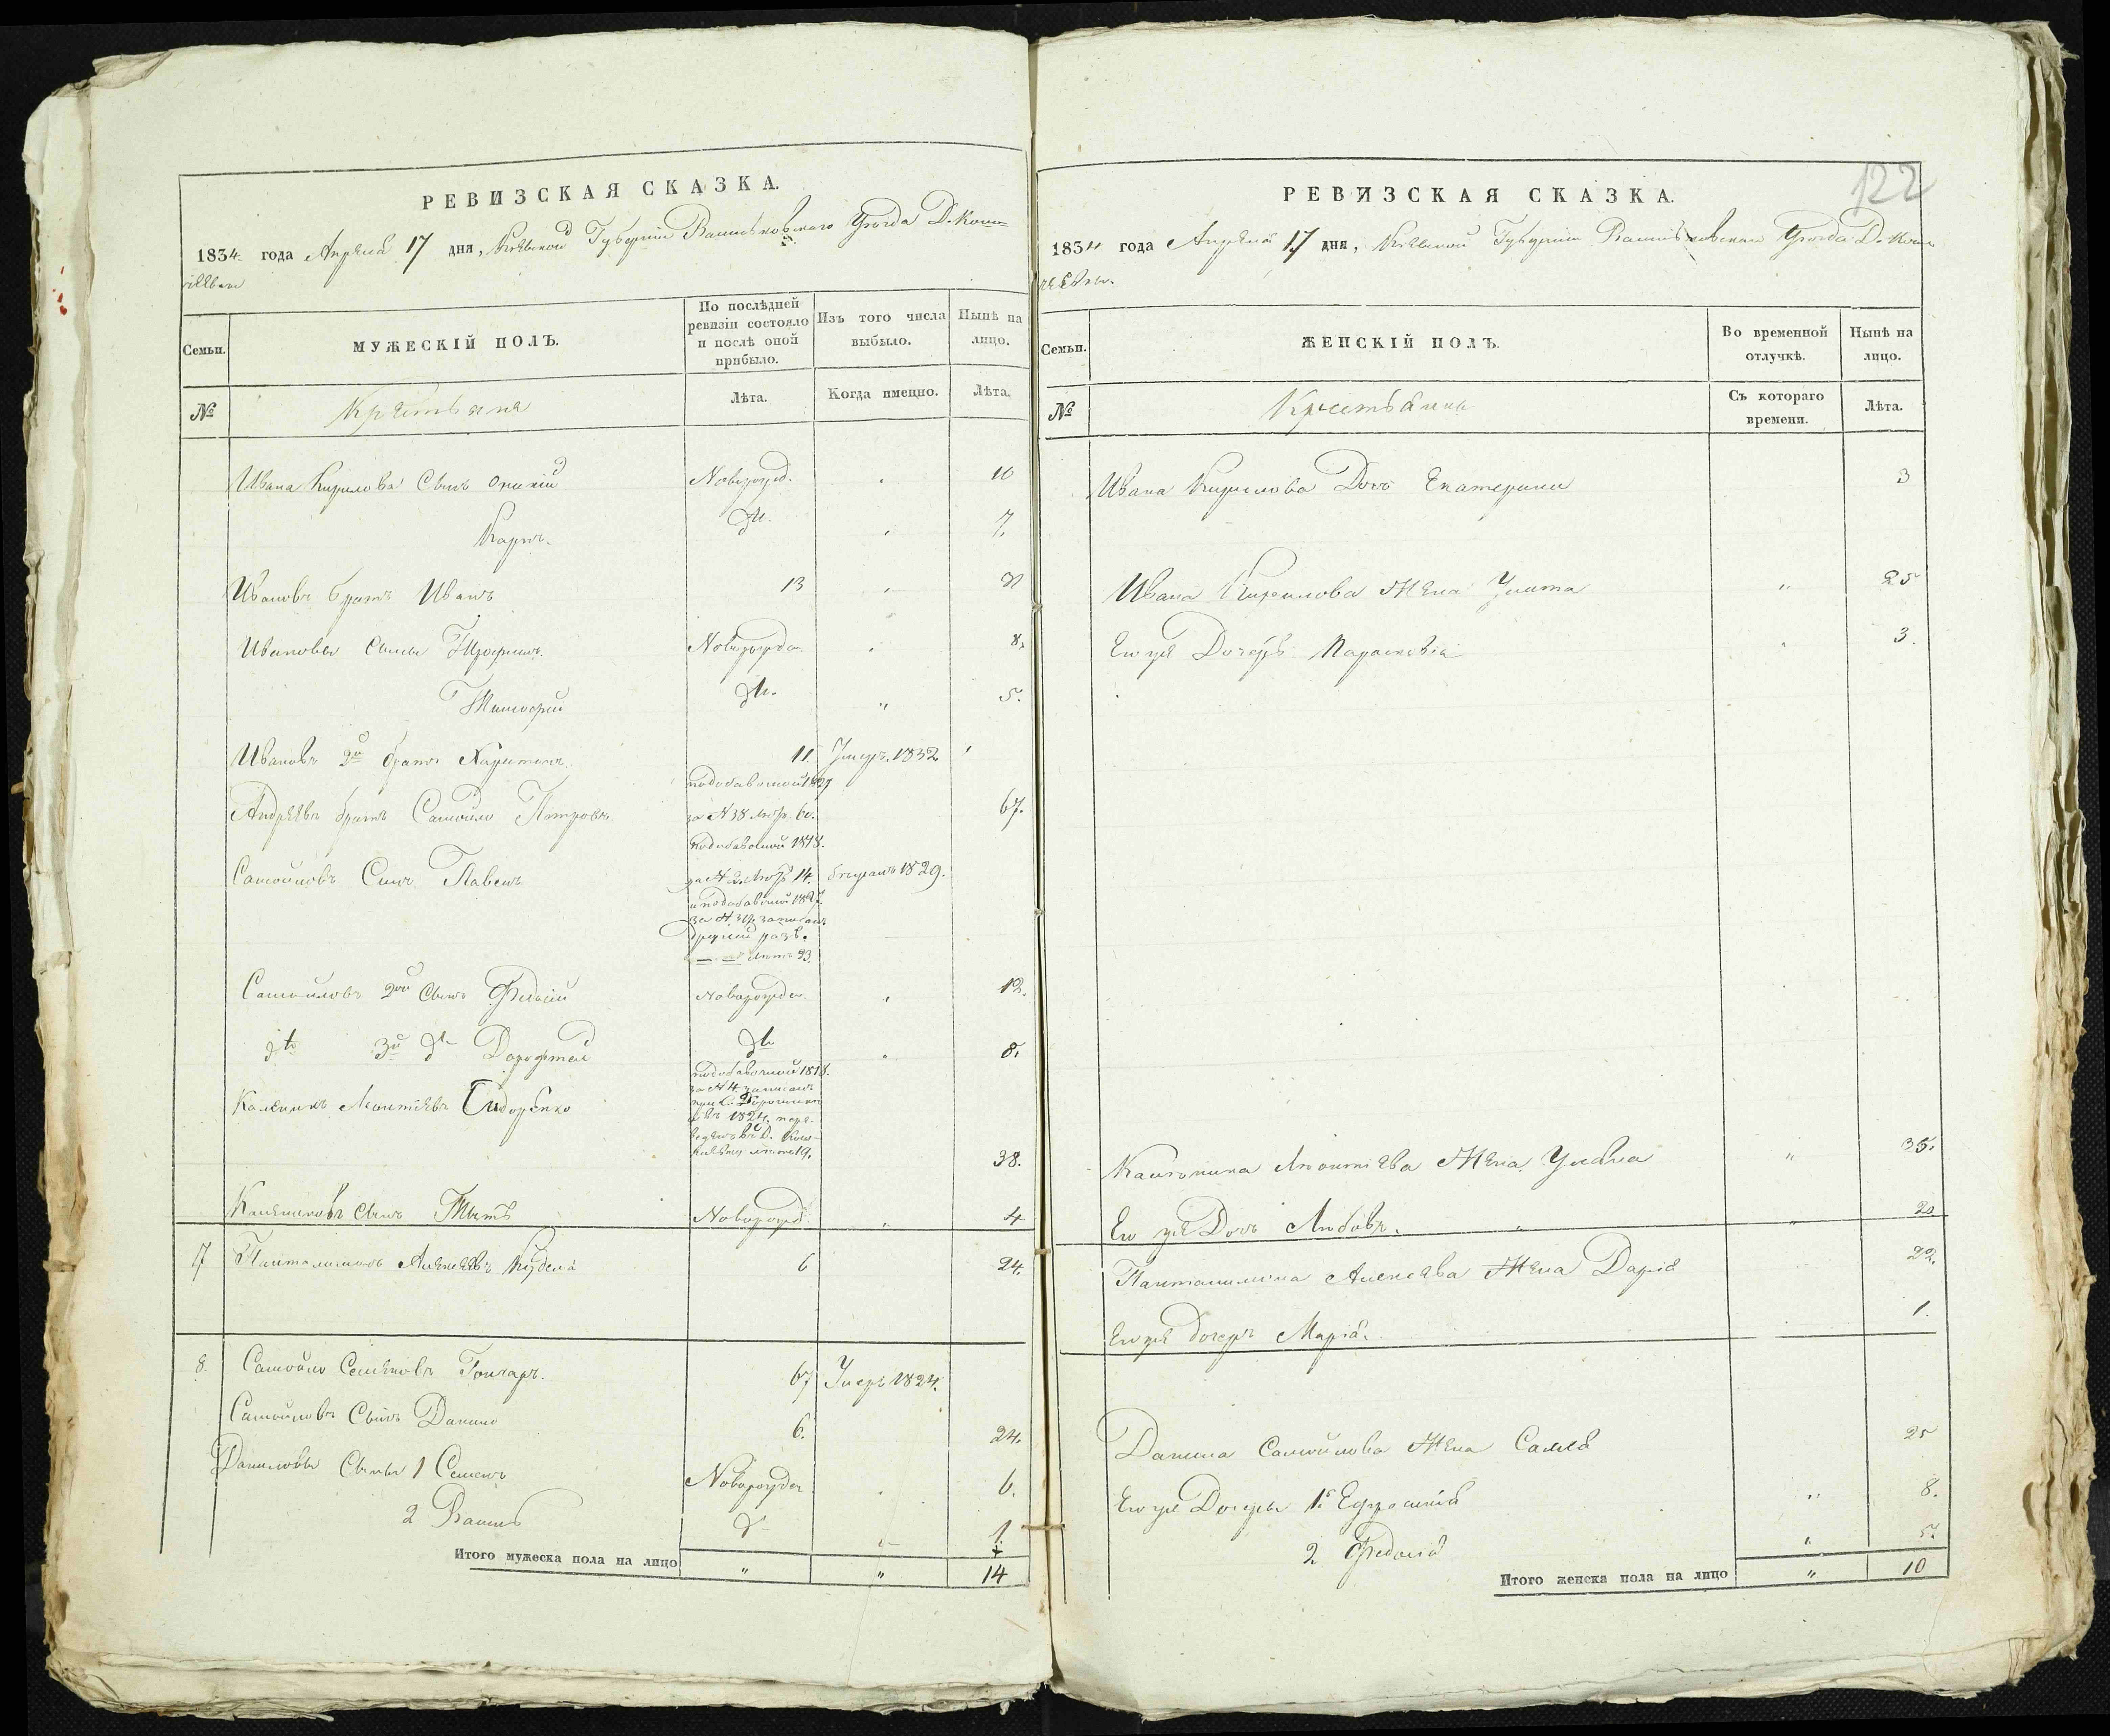 РЕВИЗСКАЯ СКАЗКА.
1834 года Апреля 17 дня, Кіевской Губерніи Васильковскаго Уезда Д. Кош-
Семьи.
МУЖЕСКІЙ ПОЛЪ.
По послѣдней ревизіи состояло и послѣ оной прибыло.
Изъ того числа выбыло.
Нынѣ на лицо.
№
Крестьяне
Лѣта.
Когда именно.
Лѣта.
Ивана Кирилова Сынъ Новорожд. " 10
Карпъ. дто. " 7.
Ивановъ братъ Иванъ 13 "
Ивановы Сыны Трофимъ. Новорожден. " 8.
Тимофей дто. " 5.
Ивановъ 2й братъ Харитонъ. 11. Умеръ. 1832
подобавочной 1827
Андреевъ братъ Самойло Петровъ. за № 38 летъ 60. 67.
подобавочной 1818.
Самойловъ Сынъ Павелъ за № 2. летъ 14. бежалъ 1829.
и подобавочной 1827.
за № записанъ
другой разъ.
летъ 23.
Самойловъ 2й Сынъ Федосій Новорожден. " 12.
дто 3й дто Дорофтей дто " 8.
подобавочной 1818.
за № 4 записанъ
Каленикъ Леонтіевъ Сидоренко
въ 1824. пере-
веденъ въ Д. Кош-
летъ 19. 38.
Калениковъ Сынъ Титъ Новорожд. " 4
7 Панталимонъ Алексеевъ Кудела 6 24.
8. Самойло Семеновъ Гончаръ. 67 Умеръ 1824.
Самойловъ Сынъ Данило 6. 24.
Даниловы Сыны 1 Семенъ Новорожден " 6.
2 Василь д- " 1.
Итого мужеска пола на лицо " " 14
122
РЕВИЗСКАЯ СКАЗКА.
1834 года Апреля 17 дня, Кіевской Губерніи Васильковскаго Уезда Д. Кош-
Семьи.
ЖЕНСКІЙ ПОЛЪ.
Во временной отлучкѣ.
Нынѣ на лицо.
№
Крестьянки
Съ котораго времени.
Лѣта.
Ивана Кирилова Дочь Екатерина 3
Ивана Кирилова Жена Улита " 25
Его же Дочерь Парасковія " 3.
Калиника Леонтіева Жена Уляна " 35.
Его же Дочь Любовь. " " 20
Панталимона Алексеева Жена Дарія 22.
Его же дочерь Марія. 1.
Данила Самойлова Жена 25
Его же Дочеры 1я Ефросинія " 8.
2 Федосія " 5.
Итого женска пола на лицо " 10